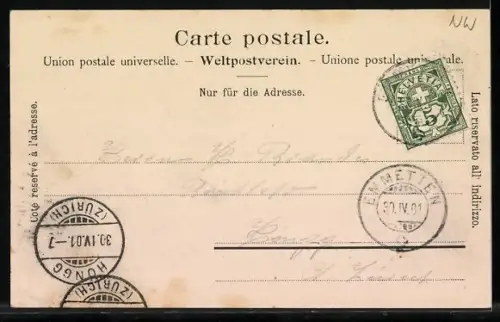 NW
Carte postale.
Union postale universelle. – Weltpostverein. – Unione postale universale.
Nur für die Adresse.
Côté réservé à l'adresse.
Lato riservato all' indirizzo.
HELVETIA
5
Herrn
EMMETTEN
30.IV.01
Höngg
HÖNGG
30.IV.01.-7
(ZÜRICH)
(ZÜRICH)